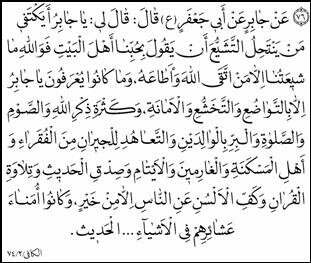 ٧٦ عَنْ جَابِرٍ عَنْ أَبِي جَعْفَرٍ (ع) قَالَ: قَالَ لِي: يَا جَابِرُ أَيَكْتَفِي
مَنْ يَنْتَحِلُ التَّشَيُّعَ أَنْ يَقُولَ بِحُبِّنَا أَهْلَ الْبَيْتِ فَوَاللهِ مَا
شِيعَتُنَا إِلَّا مَنْ اتَّقَى اللهَ وَأَطَاعَهُ، وَمَا كَانُوا يُعْرَفُونَ يَا جَابِرُ
إِلَّا بِالتَّوَاضُعِ وَالتَّخَشُّعِ وَالْأَمَانَةِ، وَكَثْرَةِ ذِكْرِ اللهِ وَالصَّوْمِ
وَالصَّلَوٰةِ وَالْبِرِّ بِالْوَالِدَيْنِ وَالتَّعَاهُدِ لِلْجِيرَانِ مِنَ الْفُقَرَاءِ وَ
أَهْلِ الْمَسْكَنَةِ وَالْغَارِمِينَ وَالْأَيْتَامِ وَصِدْقِ الْحَدِيثِ وَتِلَاوَةِ
الْقُرْاٰنِ وَكَفِّ الْأَلْسُنِ عَنِ النَّاسِ إِلَّا مِنْ خَيْرٍ، وَكَانُوا أُمَنَاءَ
عَشَائِرِهِمْ فِي الْأَشْيَاءِ... الْحَدِيثَ.
الكافي ٧٤/٢